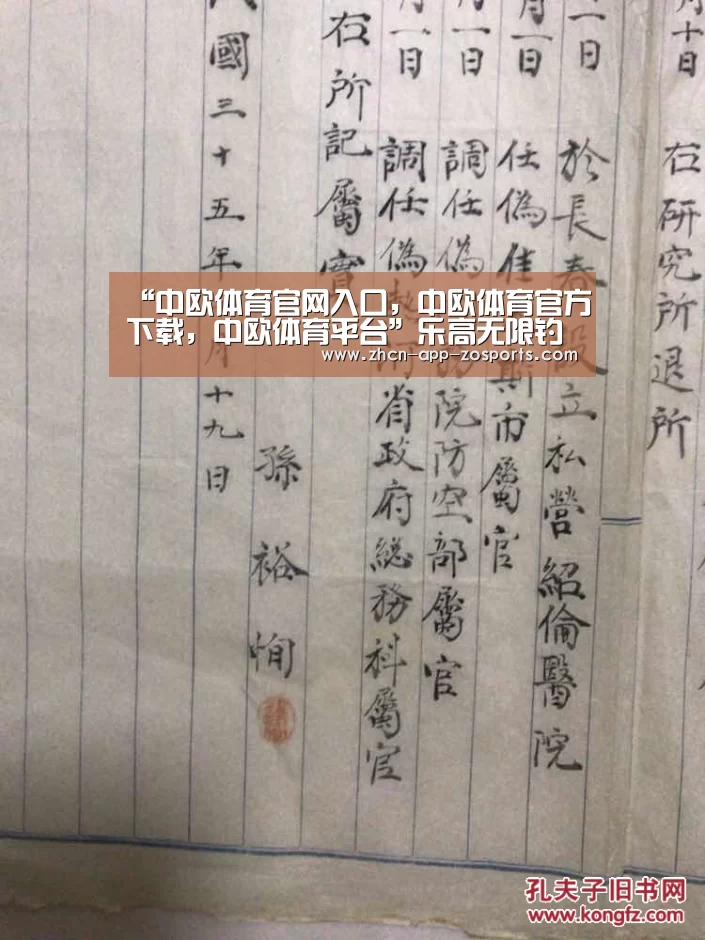 月十日 右研究所退所
一日 於長春設立私營紹倫醫院
月一日 任偽佳斯市屬官
月一日 調任偽院防空部屬官
月一日 調任偽省政府總務科屬官
右所記屬實
國三十五年月十九日
孫裕恂
“中欧体育官网入口，中欧体育官方
下载，中欧体育平台”乐高无限钓
www.zhcn-app-zosports.com
孔夫子旧书网
www.kongfz.com